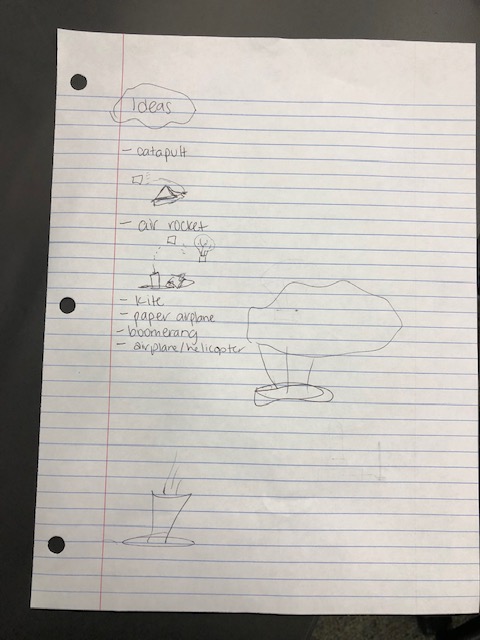 Ideas
- catapult
- air rocket
- kite
- paper airplane
- boomerang
- airplane/helicopter